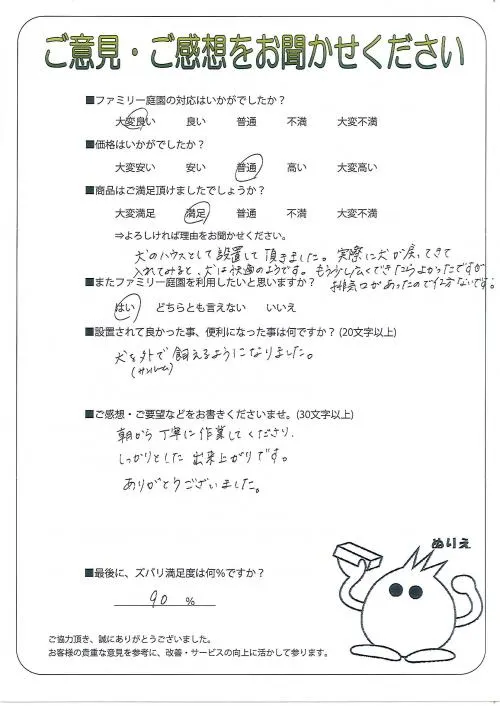 ご意見・ご感想をお聞かせください
■ファミリー庭園の対応はいかがでしたか？
大変良い 良い 普通 不満 大変不満
■価格はいかがでしたか？
大変安い 安い 普通 高い 大変高い
■商品はご満足頂けましたでしょうか？
大変満足 満足 普通 不満 大変不満
⇒よろしければ理由をお聞かせください。
犬のハウスとして設置して頂きました。実際に犬が戻ってきて
入れてみると、犬は快適のようです。もう少し広くできたらよかったですが
■またファミリー庭園を利用したいと思いますか？ 排気口があったので仕方ないです。
はい どちらとも言えない いいえ
■設置されて良かった事、便利になった事は何ですか？(20文字以上)
犬を外で飼えるようになりました。
(サンルーム)
■ご感想・ご要望などをお書きくださいませ。(30文字以上)
朝から丁寧に作業してくださり、
しっかりとした出来上がりです。
ありがとうございました。
ぬりえ
■最後に、ズバリ満足度は何％ですか？
90 %
ご協力頂き、誠にありがとうございました。
お客様の貴重な意見を参考に、改善・サービスの向上に活かして参ります。